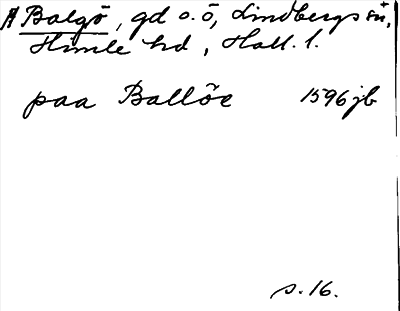 A Balgö, gd o. ö, Lindbergs sn,
Himle hd, Hall. l.
paa Ballöe 1596 jb
s. 16.